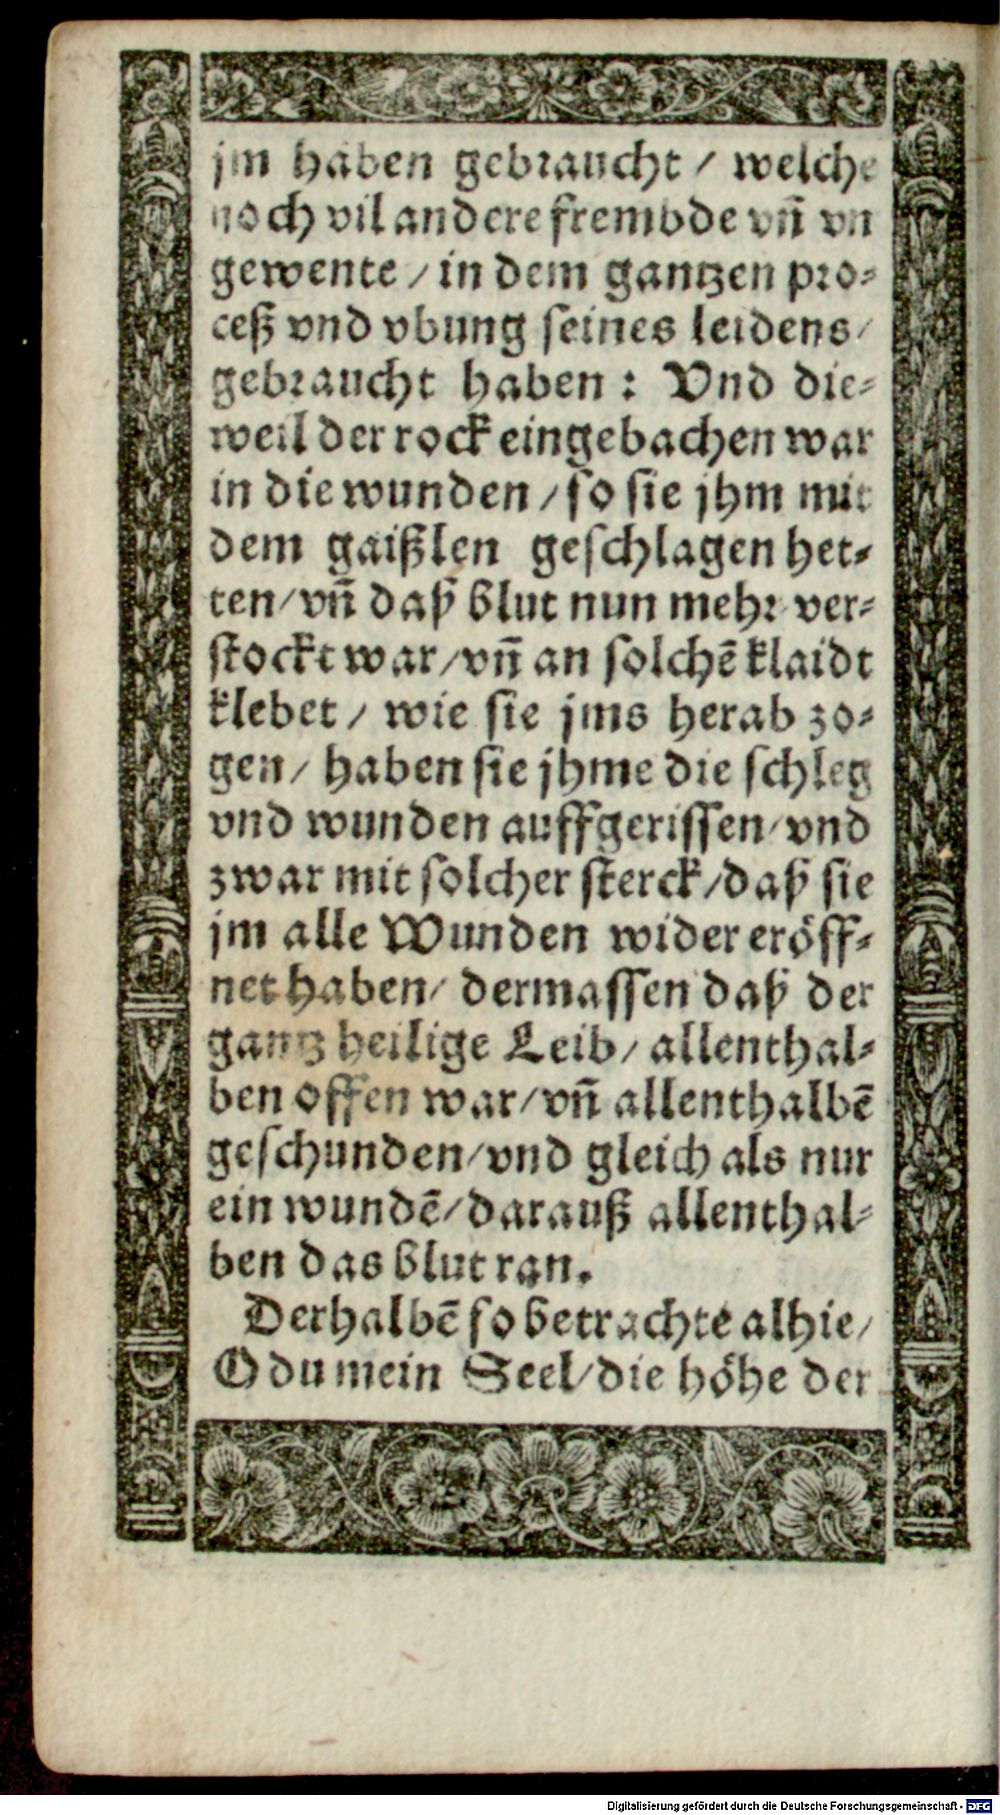 jm haben gebraucht / welche
noch vil andere frembde vñ vn
gewente / in dem gantzen pro-
ceß vnd vbung seines leidens /
gebraucht haben : Vnd die-
weil der rock eingebachen war
in die wunden / so sie jhm mit
dem gaißlen geschlagen het-
ten / vñ daß blut nun mehr ver-
stockt war / vñ an solchē klaidt
klebet / wie sie jms herab zo-
gen / haben sie jhme die schleg
vnd wunden auffgerissen / vnd
zwar mit solcher sterck / daß sie
jm alle Wunden wider eröff-
net haben / dermassen daß der
gantz heilige Leib / allenthal-
ben offen war / vñ allenthalbē
geschunden / vnd gleich als nur
ein wundē / darauß allenthal-
ben das blut ran.
Derhalbē so betrachte alhie /
O du mein Seel / die höhe der
Digitalisierung gefördert durch die Deutsche Forschungsgemeinschaft - DFG